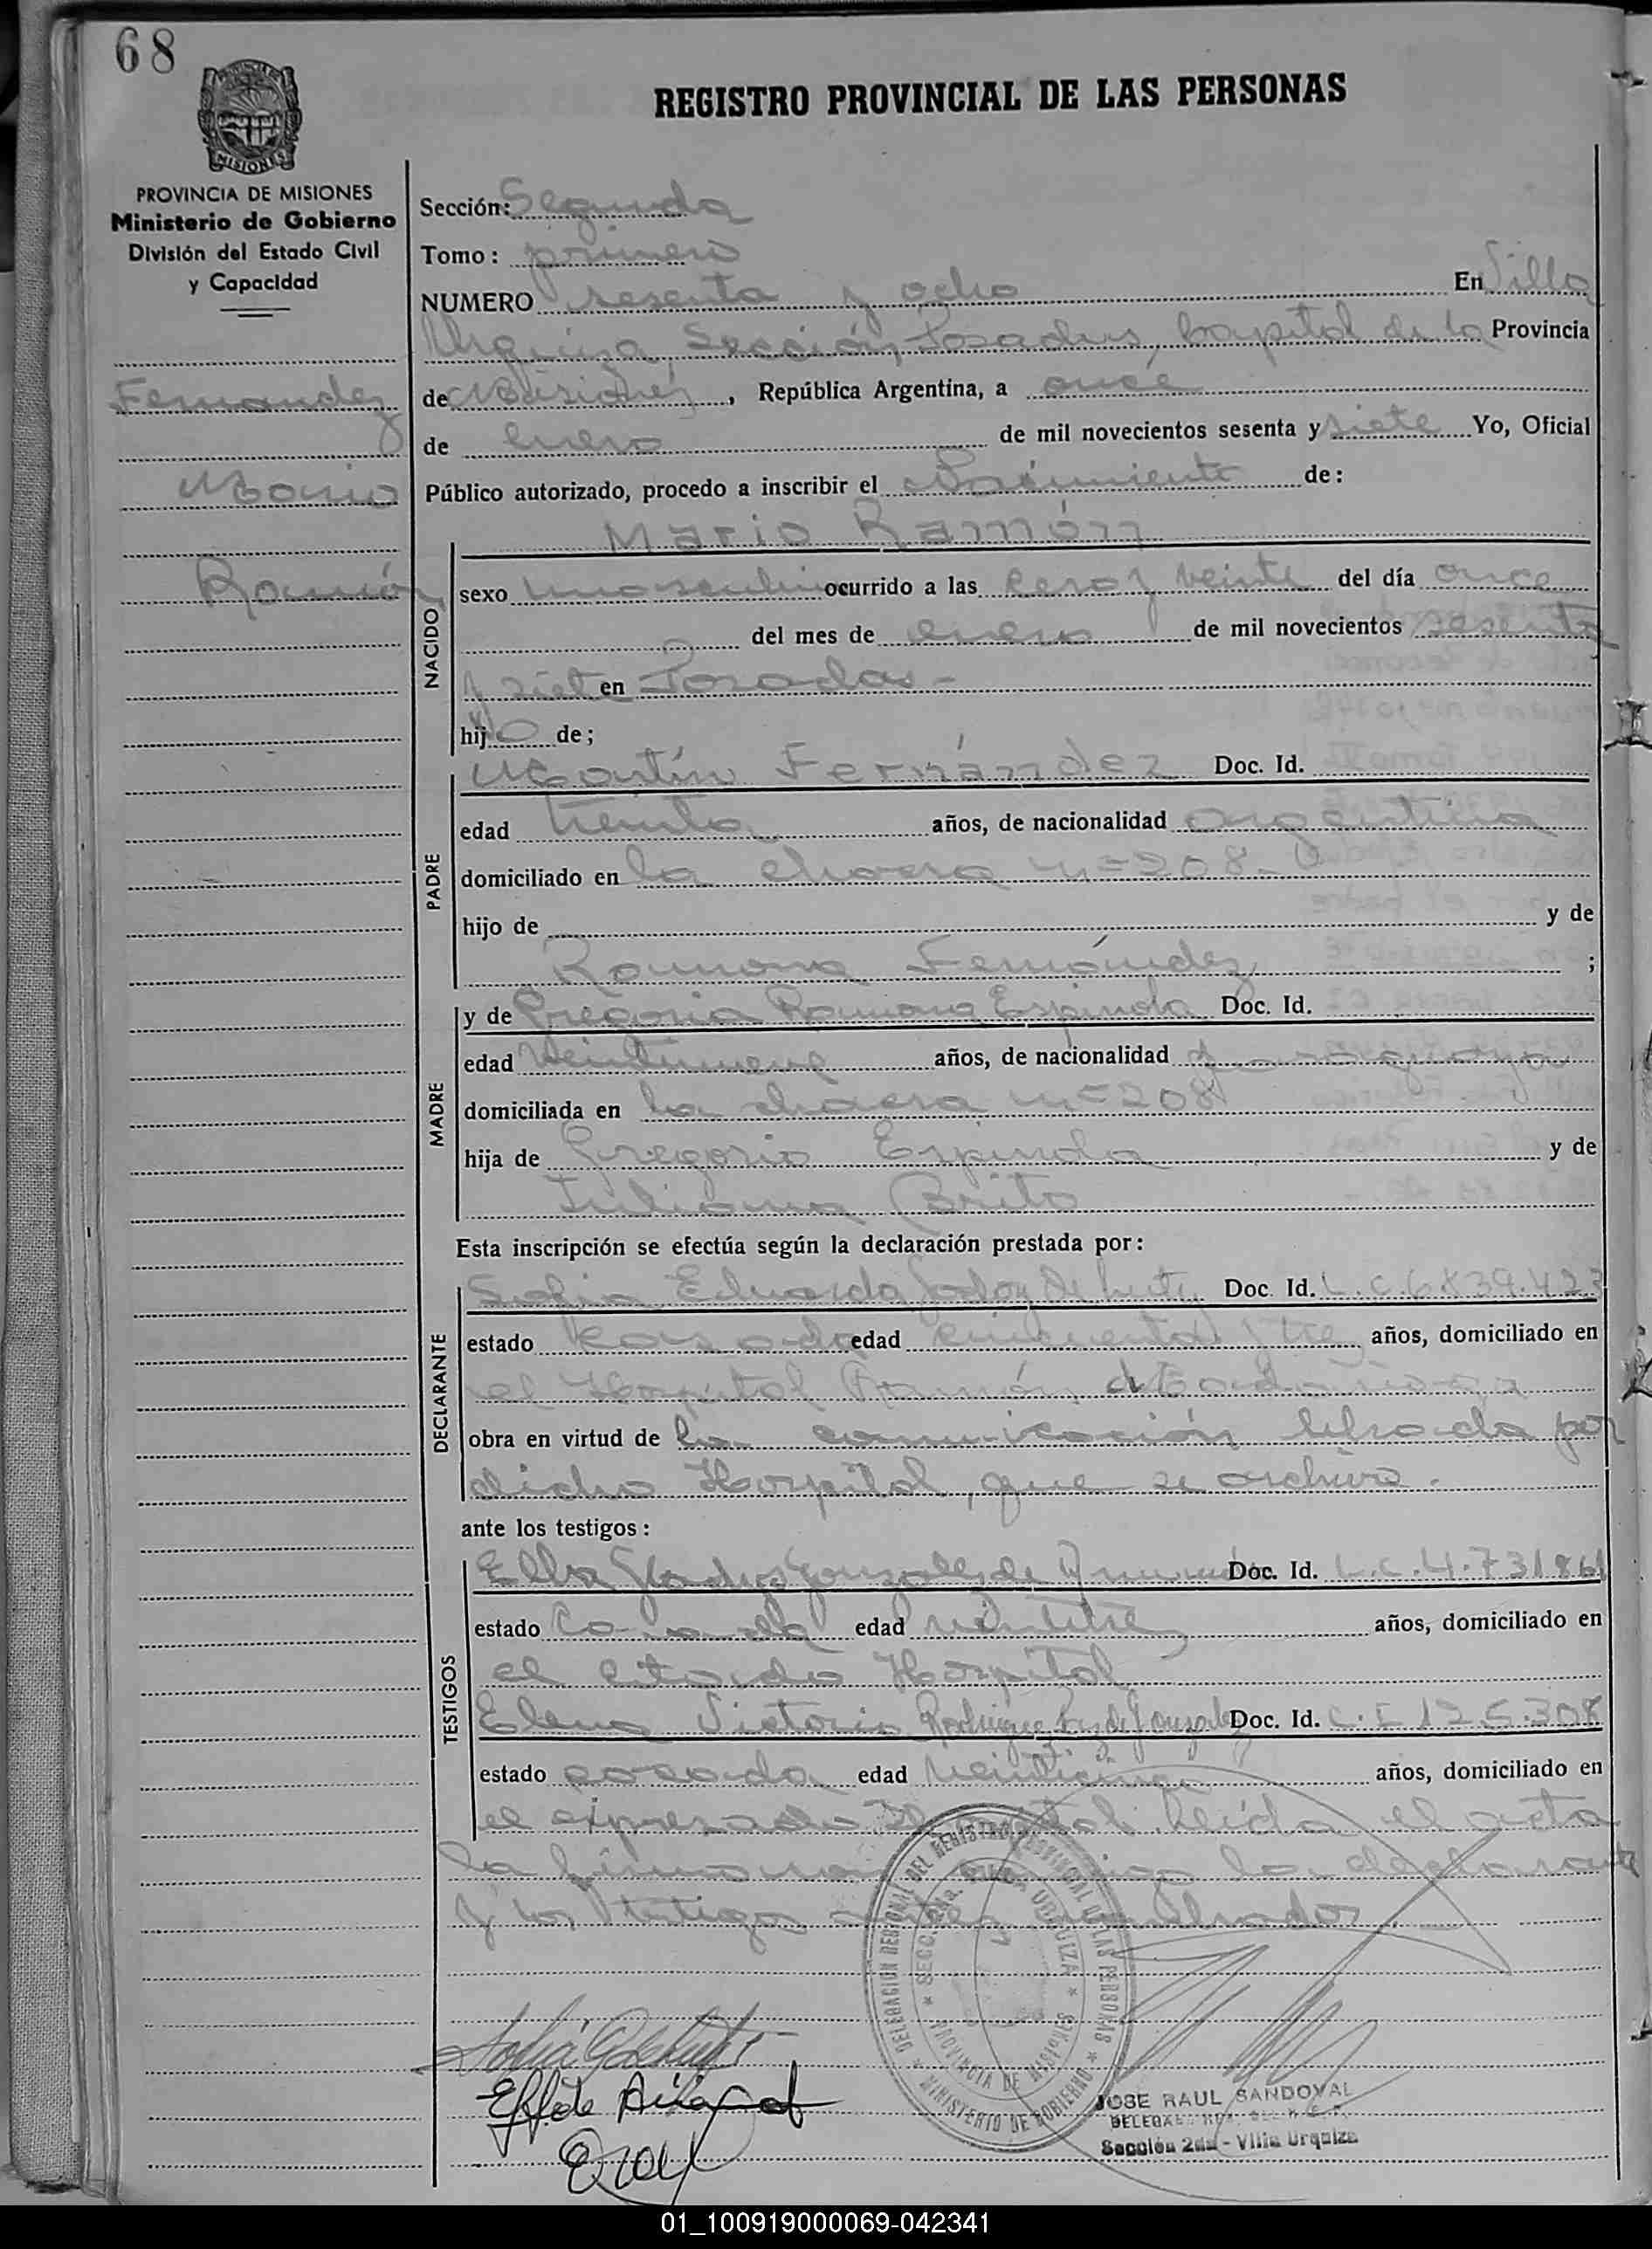 68
REGISTRO PROVINCIAL DE LAS PERSONAS
MISIONES
PROVINCIA DE MISIONES
Ministerio de Gobierno
División del Estado Civil
y Capacidad
Fernandez
Mario
Ramón
Sección: Segunda
Tomo: primero
NUMERO sesenta y ocho En Villa
Urquiza, Sección Posadas, Capital de la Provincia
de Misiones, República Argentina, a once
de enero de mil novecientos sesenta y siete Yo, Oficial
Público autorizado, procedo a inscribir el Nacimiento de:
Mario Ramón
NACIDO
sexo masculino ocurrido a las cero y veinte del día once
del mes de enero de mil novecientos sesenta
y siete en Posadas -
hijo de;
PADRE
Martín Fernández Doc. Id.
edad treinta años, de nacionalidad argentina
domiciliado en la chacra nº 208 -
hijo de y de
Ramona Fernández ;
MADRE
y de Gregoria Ramona Espinola Doc. Id.
edad veintinueve años, de nacionalidad paraguaya
domiciliada en la chacra nº 208
hija de Gregorio Espinola y de
Juliana Brito
Esta inscripción se efectúa según la declaración prestada por:
DECLARANTE
Sofia Eduarda Godoy de Doc. Id. L.C. 6839.423
estado casada edad cincuenta y tres años, domiciliado en
el Hospital Ramón Madariaga
obra en virtud de la comunicación librada por
dicho Hospital, que se archiva.
ante los testigos:
TESTIGOS
Elba Gladys Gonzalez de Doc. Id. L.C. 4.731861
estado Casada edad veintitres años, domiciliado en
el citado Hospital
Elena Victoria Rodriguez de Gonzalez Doc. Id. C.I 125.308
estado casada edad veinticinco años, domiciliado en
el expresado Hospital. Leída el acta
la firman conmigo la declarante
y los testigos nombrados.
DELEGACION REGIONAL DEL REGISTRO PROVINCIAL DE LAS PERSONAS
MINISTERIO DE GOBIERNO
SECC. 2da. VILLA URQUIZA
PROVINCIA DE MISIONES
JOSE RAUL SANDOVAL
Sección 2da - Villa Urquiza
01_100919000069-042341